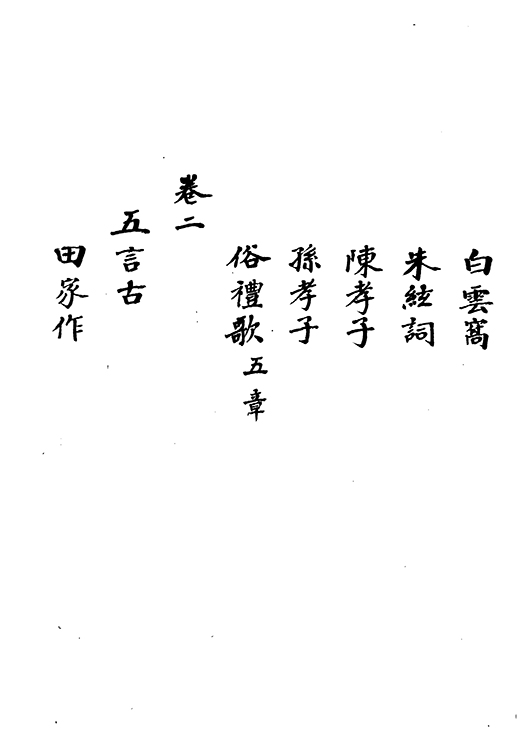 白雲窩
朱絃詞
陳孝子
孫孝子
俗禮歌五章
卷二
五言古
田家作